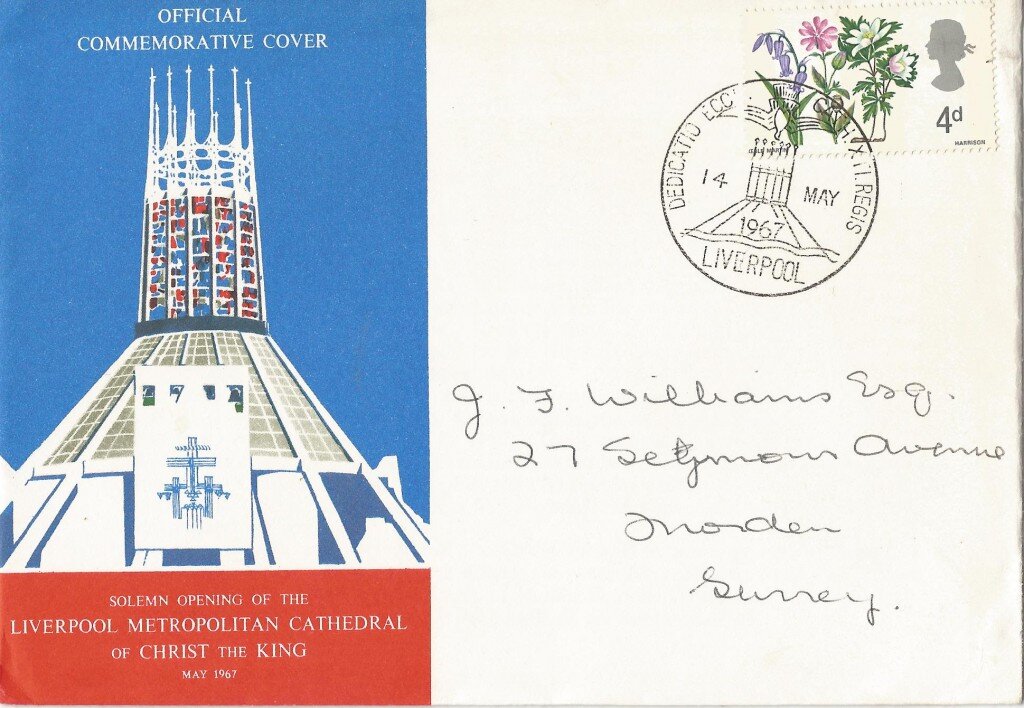 OFFICIAL
COMMEMORATIVE COVER
4d
HARRISON
DEDICATIO ECC
REGIS
14 MAY
1967
LIVERPOOL
J. F. Williams Esq.
27 Seymour Avenue
Morden
Surrey.
SOLEMN OPENING OF THE
LIVERPOOL METROPOLITAN CATHEDRAL
OF CHRIST THE KING
MAY 1967